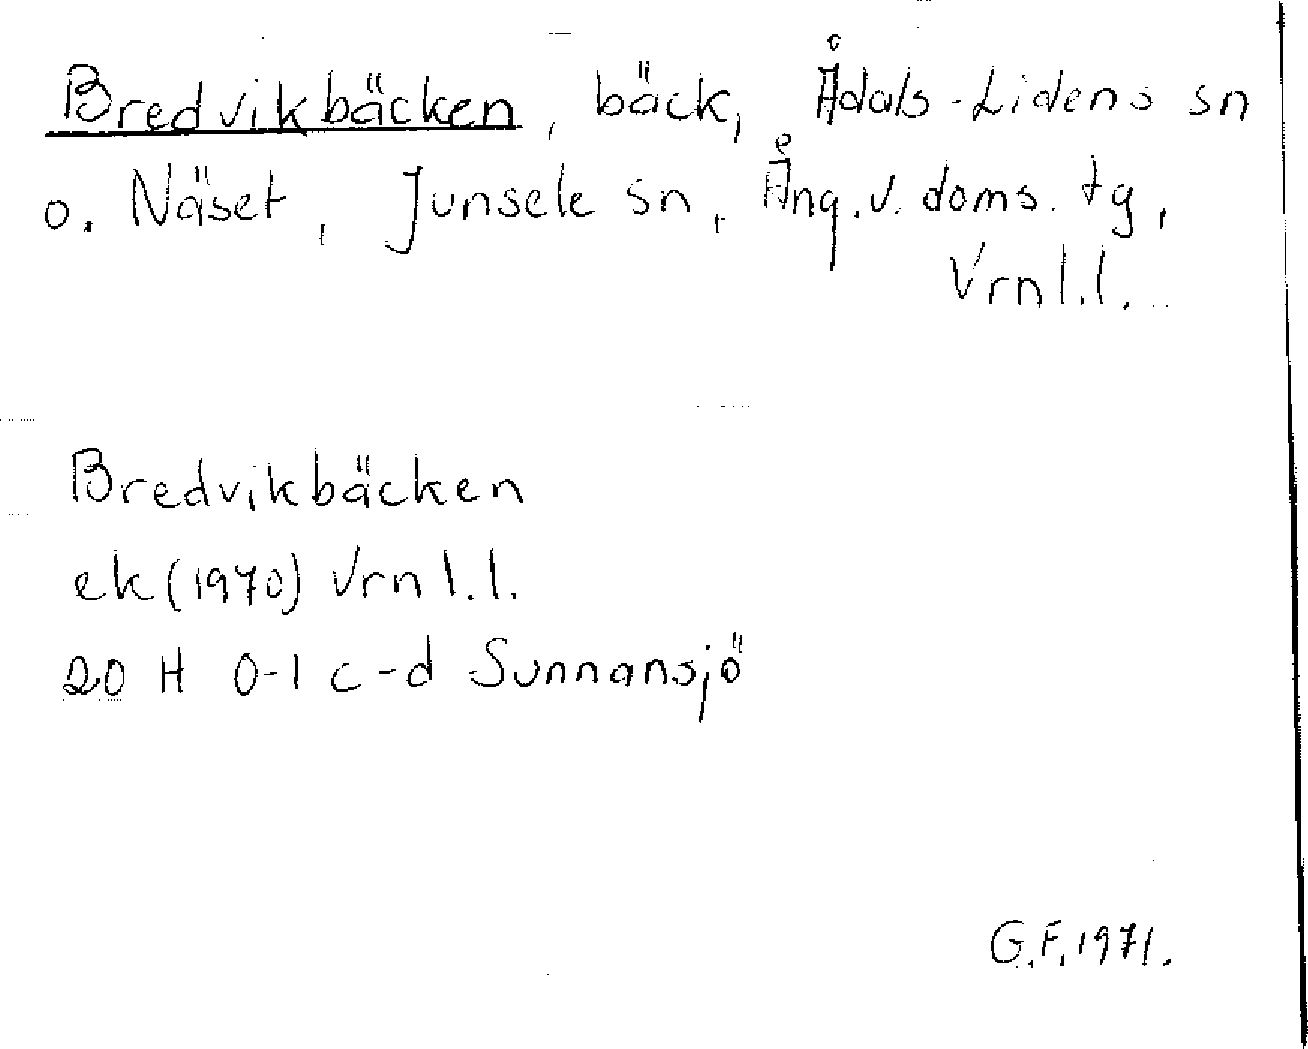 Bredvikbäcken, bäck, Ådals-Lidens sn
o. Näset, Junsele sn, Ång.v. doms. tg,
Vrnl.l.
Bredvikbäcken
ek (1970) Vrnl.l.
20 H 0-1 c-d Sunnansjö
G.F. 1971.